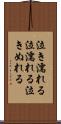 泣き濡れる
泣濡れる泣
きぬれる